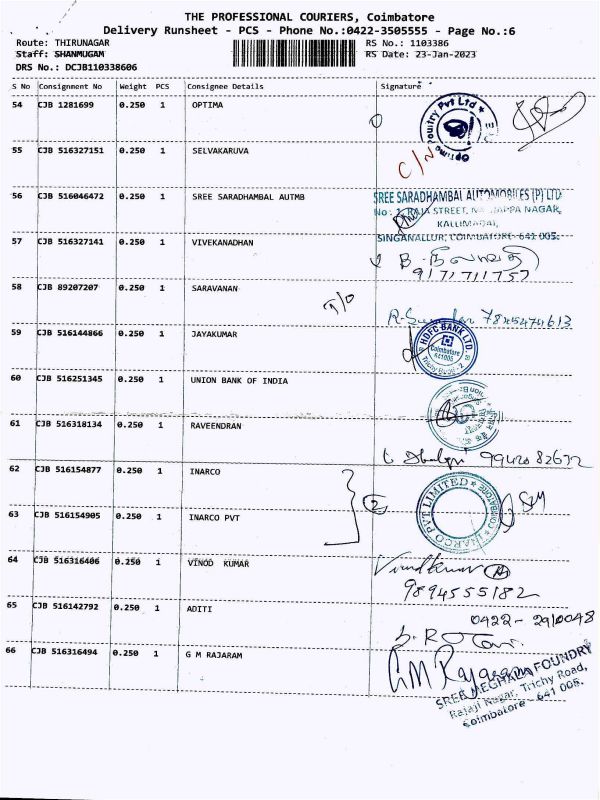 THE PROFESSIONAL COURIERS, Coimbatore
Delivery Runsheet - PCS - Phone No.:0422-3505555 - Page No.:6
Route: THIRUNAGAR RS No.: 1103386
Staff: SHANMUGAM RS Date: 23-Jan-2023
DRS No.: DCJB110338606
S No Consignment No Weight PCS Consignee Details Signature
54 CJB 1281699 0.250 1 OPTIMA
Poultry Pvt Ltd
55 CJB 516327151 0.250 1 SELVAKARUVA C/N
56 CJB 516046472 0.250 1 SREE SARADHAMBAL AUTMB SREE SARADHAMBAL AUTOMOBILES (P) LTD
RAJA STREET, NAGAR,
KALLIMADAI,
SINGANALLUR, COIMBATORE-641 005.
57 CJB 516327141 0.250 1 VIVEKANADHAN
9171711757
58 CJB 89207207 0.250 1 SARAVANAN
59 CJB 516144866 0.250 1 JAYAKUMAR HDFC BANK LTD.
Coimbatore
641005
60 CJB 516251345 0.250 1 UNION BANK OF INDIA
61 CJB 516318134 0.250 1 RAVEENDRAN
62 CJB 516154877 0.250 1 INARCO
2
INARCO PVT LIMITED COIMBATORE
63 CJB 516154905 0.250 1 INARCO PVT
64 CJB 516316406 0.250 1 VINOD KUMAR Vinodkumar
9894555182
65 CJB 516142792 0.250 1 ADITI 0422-2910048
66 CJB 516316494 0.250 1 G M RAJARAM GM Rajaram
SREE MEGHALA FOUNDRY
Rajaji Nagar, Trichy Road,
Coimbatore - 641 005.